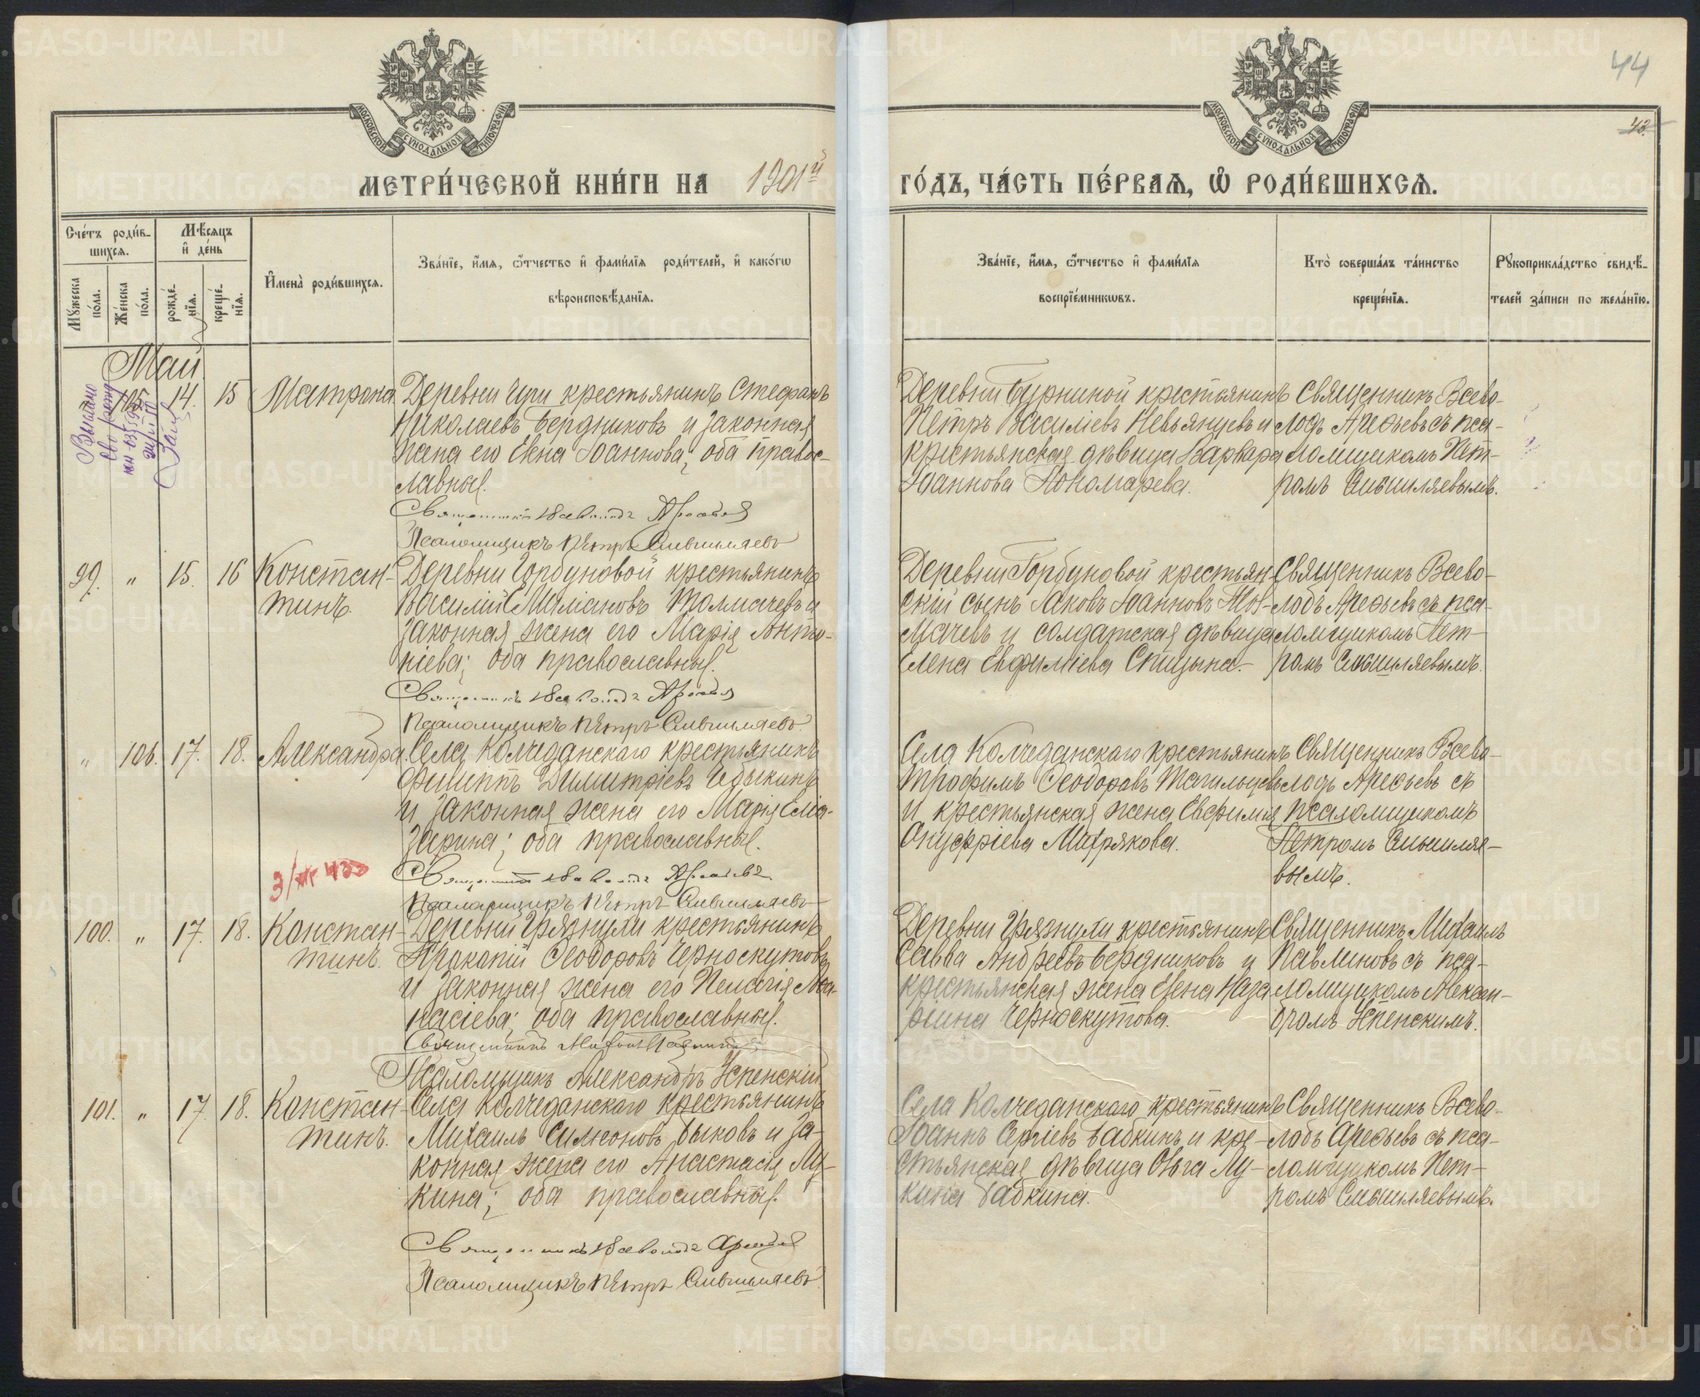 44
43.
МОСКОВСКОЙ СѴНОДАЛЬНОЙ ТИПОГРАФІИ
МОСКОВСКОЙ СѴНОДАЛЬНОЙ ТИПОГРАФІИ
МЕТРИ́ЧЕСКОЙ КНИ́ГИ НА 1901й ГО́ДЪ, ЧА́СТЬ ПЕ́РВАѦ, Ѡ҆ РОДИ́ВШИХСѦ.
Сче́тъ роди́в-
шихсѧ.
Мꙋ́жеска по́ла.
Же́нска по́ла.
Мѣ́сѧцъ и҆ де́нь
рожде́нїѧ.
креще́нїѧ.
И҆мена̀ роди́вшихсѧ.
Зва́нїе, и҆́мѧ, ѻ҆́тчество и҆ фами́лїѧ роди́телей, и҆ како́гѡ
вѣроисповѣ́данїѧ.
Зва́нїе, и҆́мѧ, ѻ҆́тчество и҆ фами́лїѧ
воспрїе́мникѡвъ.
Кто̀ соверша́лъ та́инство
креще́нїѧ.
Рꙋкоприкла́дство свидѣ́-
телей за́писи по жела́нїю.
Май
105. 14. 15 Матрона.
Деревни Чуги крестьянинъ Стефанъ
Николаевъ Бердниковъ и законная
жена его Елена Іоаннова; оба правос-
лавные.
Священникъ Всеволодъ Арефьевъ
Псаломщикъ Петръ Смышляевъ
Крестьянинъ
Петръ Василіевъ Невьянцевъ и
крестьянская дѣвица Варвара
Іоаннова Пономарева.
Священникъ Всево-
лодъ Арефьевъ съ пса-
ломщикомъ Пет-
ромъ Смышляевымъ.
99. " 15. 16 Констан-
тинъ
Деревни Горбуновой крестьянинъ
Василій Толмачевъ и
законная жена его Марія Анто-
ніева; оба православные.
Священникъ Всеволодъ Арефьевъ
Псаломщикъ Петръ Смышляевъ
Деревни Горбуновой крестьян-
скій сынъ Іаковъ Іоанновъ Тол-
мачевъ и солдатская дѣвица
Елена Евфиміева Спицына.
Священникъ Всево-
лодъ Арефьевъ съ пса-
ломщикомъ Пет-
ромъ Смышляевымъ.
" 106. 17. 18. Александра.
Села Колчеданскаго крестьянинъ
Филиппъ Димитріевъ
и законная жена его Марія Елеа-
зарина; оба православные.
Священникъ Всеволодъ Арефьевъ
Псаломщикъ Петръ Смышляевъ
Села Колчеданскаго крестьянинъ
Трофимъ Ѳеодоровъ Тагильцевъ
и крестьянская жена Евфимія
Онуфріева Мехрякова.
Священникъ Всево-
лодъ Арефьевъ съ
псаломщикомъ
Петромъ Смышляе-
вымъ.
100. " 17. 18. Констан-
тинъ.
Деревни Грязнухи крестьянинъ
Прокопій Ѳеодоровъ Черноскутовъ
и законная жена его Пелагія Аѳа-
насіева; оба православные.
Священникъ Михаилъ Павлиновъ
Псаломщикъ Александръ Успенскій
Деревни Грязнухи крестьянинъ
Савва Андреевъ Бердниковъ и
крестьянская жена Елена Наза-
рьина Черноскутова.
Священникъ Михаилъ
Павлиновъ съ пса-
ломщикомъ Алексан-
дромъ Успенскимъ.
101. " 17 18. Констан-
тинъ.
Села Колчеданскаго крестьянинъ
Михаилъ Симеоновъ Быковъ и за-
конная жена его Анастасія Лу-
кина; оба православные.
Священникъ Всеволодъ Арефьевъ
Псаломщикъ Петръ Смышляевъ
Села Колчеданскаго крестьянинъ
Іоаннъ Сергіевъ Бабкинъ и кре-
стьянская дѣвица Ольга Лу-
кина Бабкина.
Священникъ Всево-
лодъ Арефьевъ съ пса-
ломщикомъ Пет-
ромъ Смышляевымъ.
METRIKI.GASO-URAL.RU